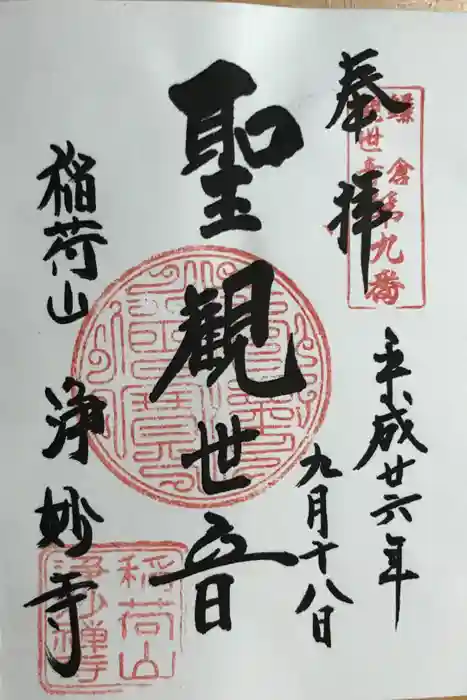 奉拝
鎌倉
観世音
第九番
平成廿六年
九月十八日
聖観世音
稲荷山
浄妙寺
稲荷山
浄妙禅寺